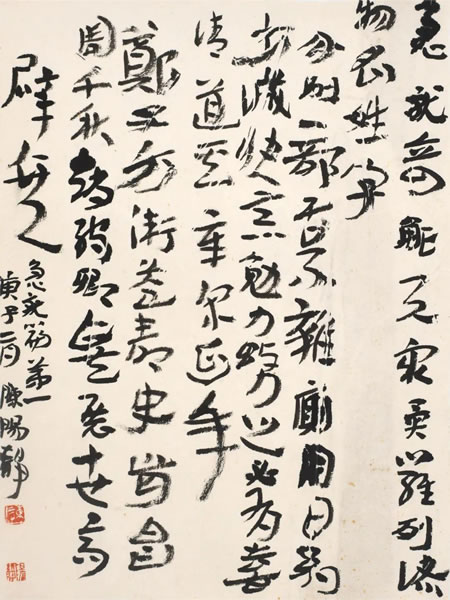 急就奇觚與眾異羅列諸
物名姓字
分別部居不雜廁用日約
少誠快意勉力務之必有喜
請道其章宋延年
鄭子方衛益壽史步昌
周千秋趙孺卿爰展世高
辟兵
急就篇第一
庚子二月陳陽靜